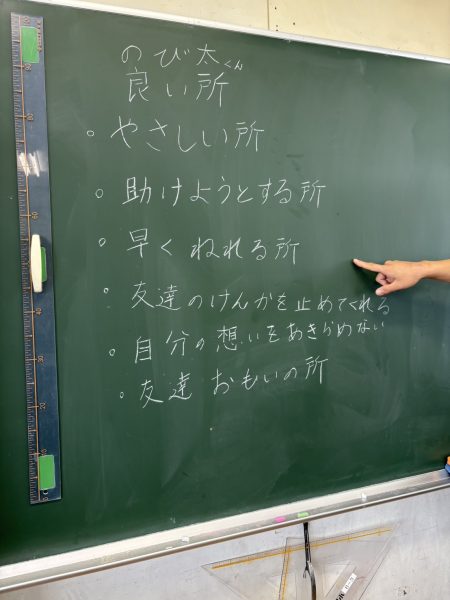 のび太くん
良い所
。やさしい所
。助けようとする所
。早くねれる所
。友達のけんかを止めてくれる
。自分の想いをあきらめない
。友達おもいの所